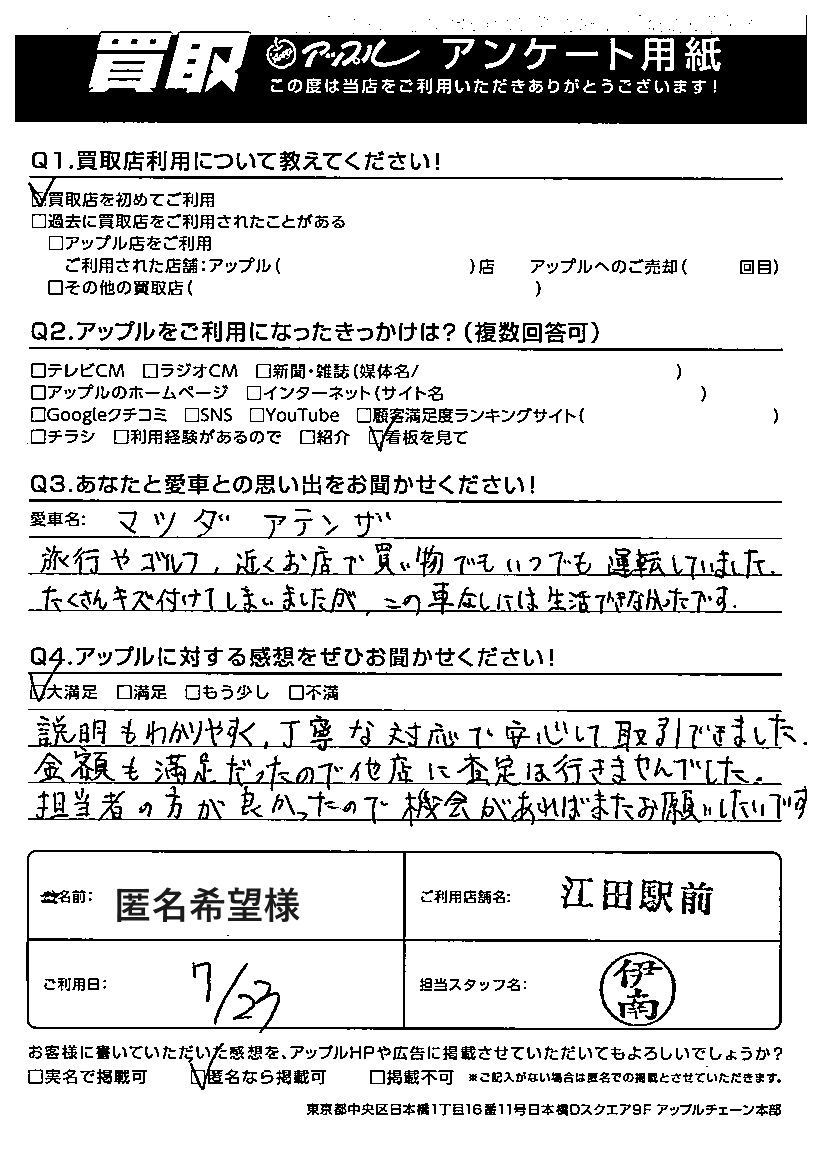 買取 アップル アンケート用紙
この度は当店をご利用いただきありがとうございます!
Q1.買取店利用について教えてください!
☑買取店を初めてご利用
□過去に買取店をご利用されたことがある
□アップル店をご利用
ご利用された店舗:アップル( )店 アップルへのご売却( 回目)
□その他の買取店( )
Q2.アップルをご利用になったきっかけは?(複数回答可)
□テレビCM □ラジオCM □新聞・雑誌(媒体名/ )
□アップルのホームページ □インターネット(サイト名 )
□Googleクチコミ □SNS □YouTube □顧客満足度ランキングサイト( )
□チラシ □利用経験があるので □紹介 ☑看板を見て
Q3.あなたと愛車との思い出をお聞かせください!
愛車名: マツダ アテンザ
旅行やゴルフ、近くお店で買い物でもいつでも運転していました.
たくさんキズ付けてしまいましたが、この車なしには生活できなんたです.
Q4.アップルに対する感想をぜひお聞かせください!
☑大満足 □満足 □もう少し □不満
説明もわかりやすく、丁寧な対応で安心して取引できました.
金額も満足だったので他店に査定は行きませんでした。
担当者の方が良かったので機会があればまたお願いしたいです
お名前: 匿名希望様
ご利用店舗名: 江田駅前
ご利用日: 7/23
担当スタッフ名: 伊南
お客様に書いていただいた感想を、アップルHPや広告に掲載させていただいてもよろしいでしょうか?
□実名で掲載可 ☑匿名なら掲載可 □掲載不可 ※ご記入がない場合は匿名での掲載とさせていただきます。
東京都中央区日本橋1丁目16番11号日本橋Dスクエア9F アップルチェーン本部